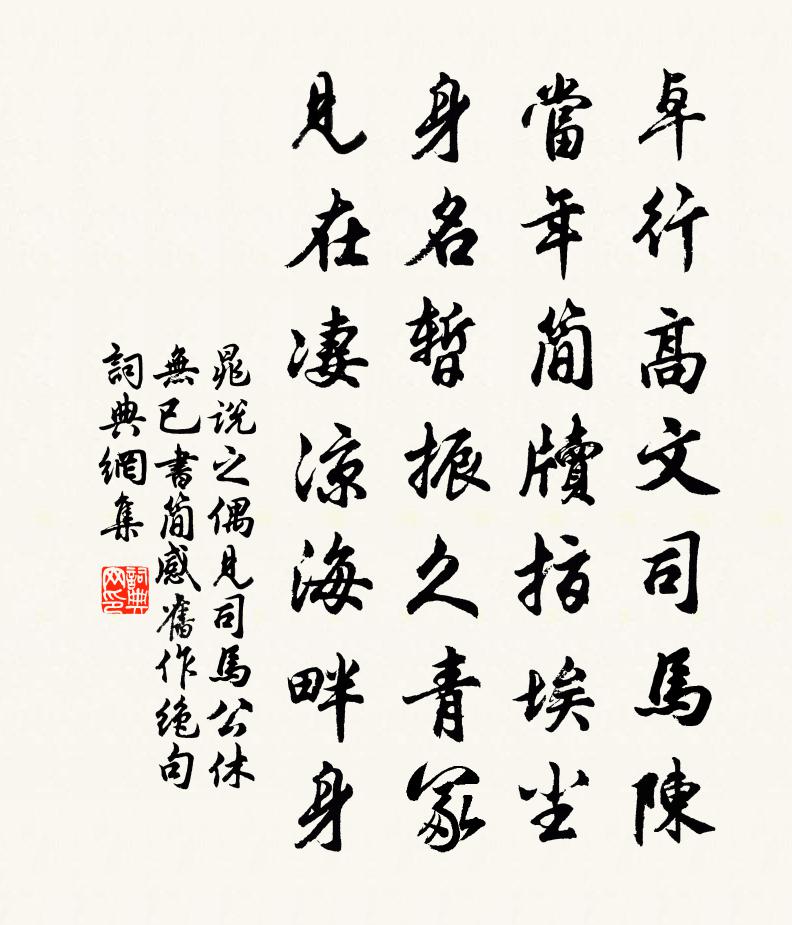 卓行高文司馬陳
當年簡牘指埃尘
身名暫振久青冢
見在凄凉海畔身
晁說之偶見司馬公休
無已書簡感舊作絕句
詞典網集
詞典网印